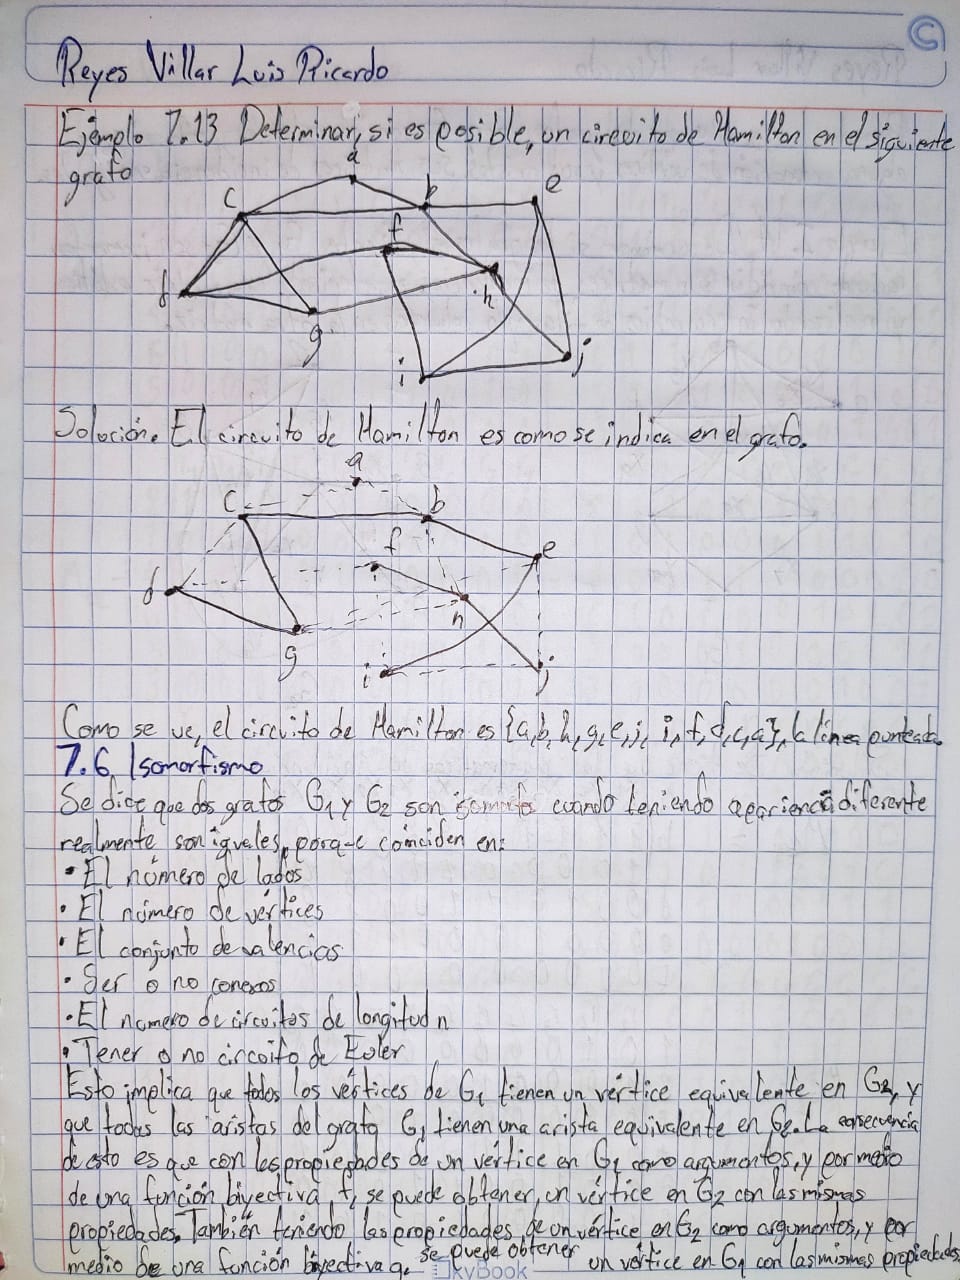 C
Reyes Villar Luis Ricardo
Ejemplo 7.13 Determinar, si es posible, un circuito de Hamilton en el siguiente
grafo
a
c
b
e
f
d
h
g
i
j
Solución. El circuito de Hamilton es como se indica en el grafo.
a
c
b
f
e
d
h
g
i
j
Como se ve, el circuito de Hamilton es {a, b, h, g, e, j, i, f, d, c, a}, la línea punteada.
7.6 Isomorfismo
Se dice que dos grafos G1 y G2 son isomorfos cuando teniendo apariencia diferente
realmente son iguales, porque coinciden en:
• El número de lados
• El número de vértices
• El conjunto de valencias
• Ser o no conexos
• El numero de circuitos de longitud n
• Tener o no circuito de Euler
Esto implica que todos los vértices de G1 tienen un vértice equivalente en G2, y
que todas las aristas del grafo G1 tienen una arista equivalente en G2. La consecuencia
de esto es que con las propiedades de un vértice en G1 como argumentos, y por medio
de una función biyectiva f, se puede obtener un vértice en G2 con las mismas
propiedades. También teniendo las propiedades de un vértice en G2 como argumentos, y por
medio de una función biyectiva g se puede obtener un vértice en G1 con las mismas propiedades
SkyBook